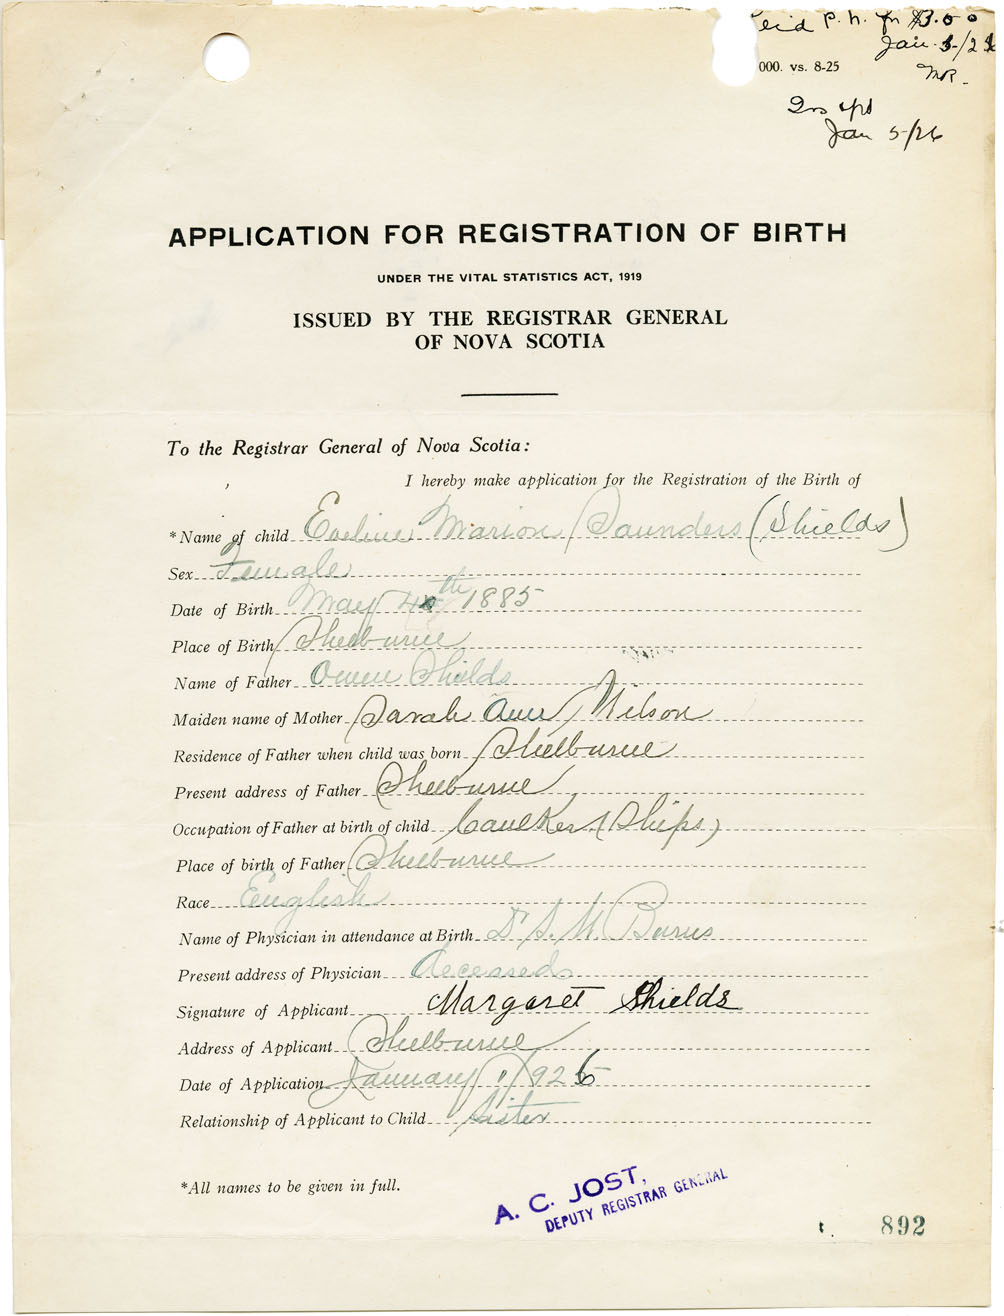 P. N. for $3.00
Jan. 5/26
000. vs. 8-25
MR.
Jan 5/26
APPLICATION FOR REGISTRATION OF BIRTH
UNDER THE VITAL STATISTICS ACT, 1919
ISSUED BY THE REGISTRAR GENERAL
OF NOVA SCOTIA
To the Registrar General of Nova Scotia:
I hereby make application for the Registration of the Birth of
*Name of child Eveline Marion Saunders (Shields)
Sex Female
Date of Birth May 4th 1885
Place of Birth Shelburne
Name of Father Owen Shields
Maiden name of Mother Sarah Ann Wilson
Residence of Father when child was born Shelburne
Present address of Father Shelburne
Occupation of Father at birth of child Caulker (Ships)
Place of birth of Father Shelburne
Race English
Name of Physician in attendance at Birth Dr S. W. Burns
Present address of Physician deceased
Signature of Applicant Margaret Shields
Address of Applicant Shelburne
Date of Application January 1/1926
Relationship of Applicant to Child Sister
*All names to be given in full.
A. C. JOST,
DEPUTY REGISTRAR GENERAL
892